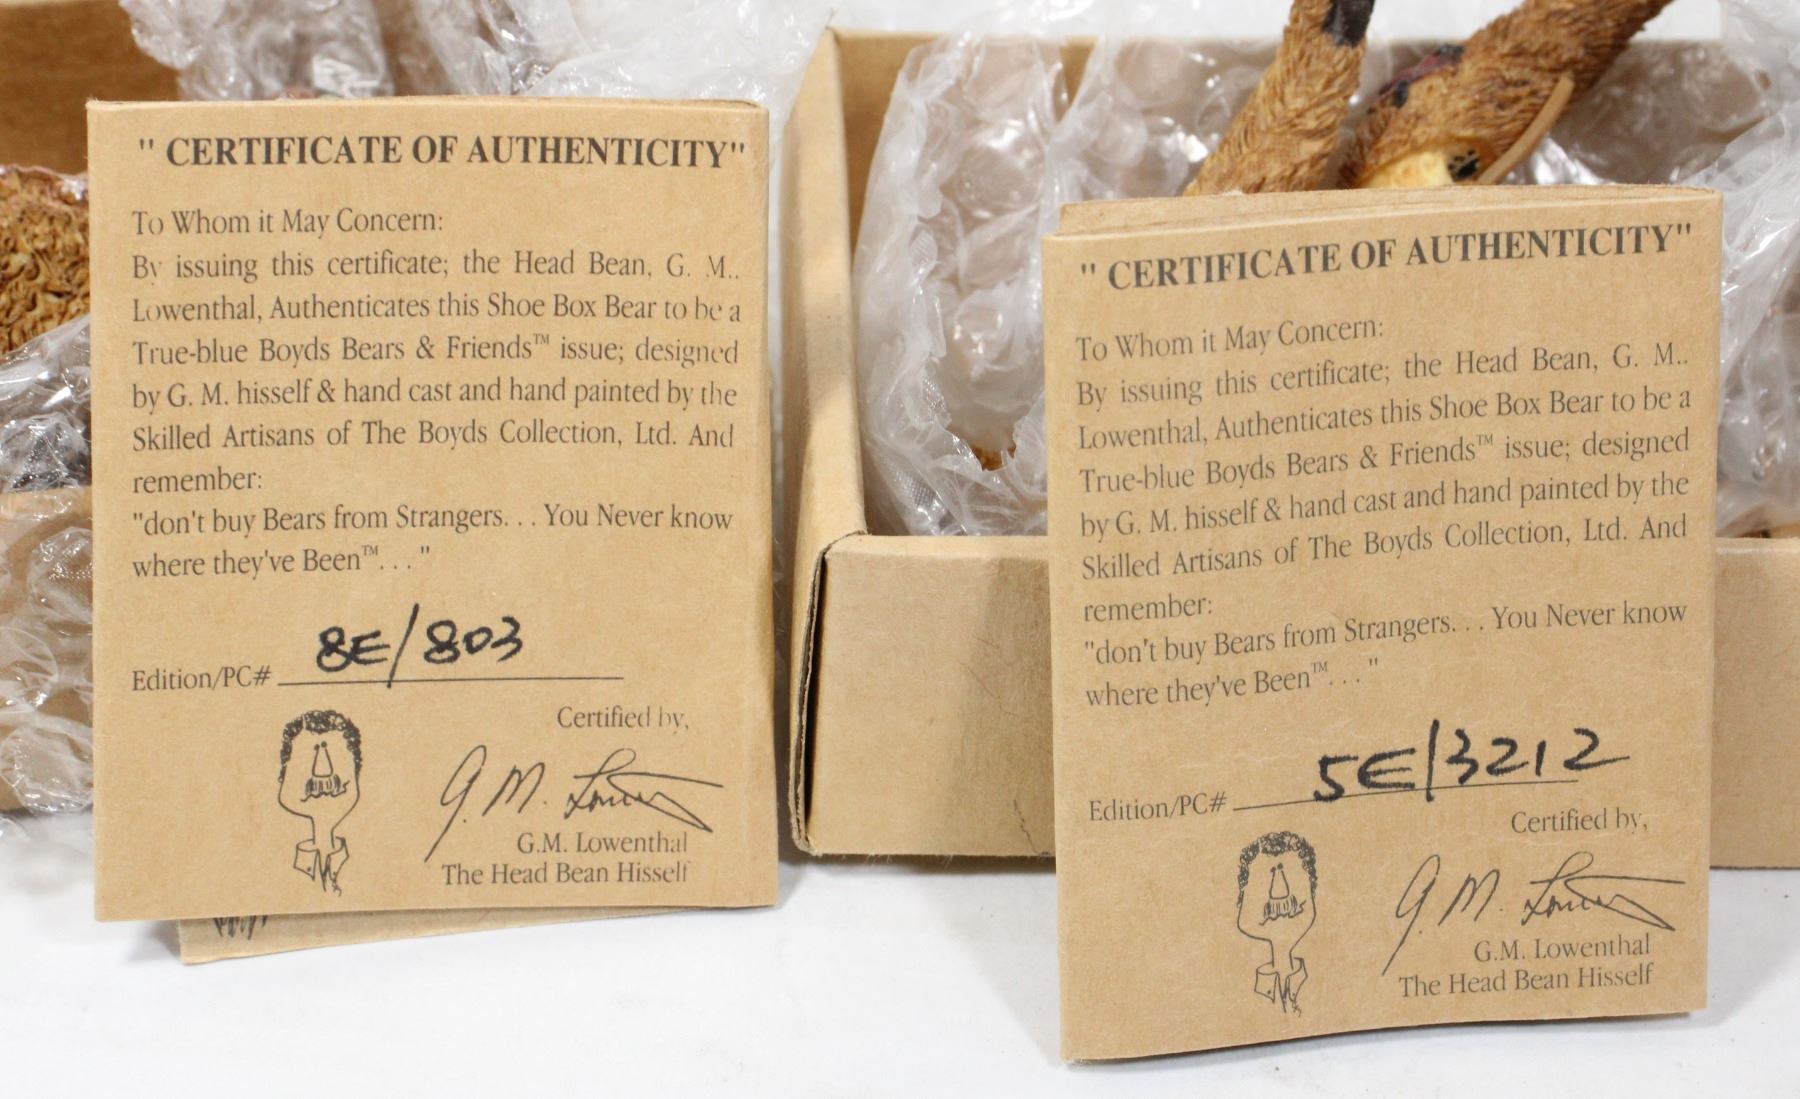 " CERTIFICATE OF AUTHENTICITY"
To Whom it May Concern:
By issuing this certificate; the Head Bean, G. M..
Lowenthal, Authenticates this Shoe Box Bear to be a
True-blue Boyds Bears & Friends™ issue; designed
by G. M. hisself & hand cast and hand painted by the
Skilled Artisans of The Boyds Collection, Ltd. And
remember:
"don't buy Bears from Strangers. . . You Never know
where they've Been™. . ."
Edition/PC# 8E/803
Certified by,
G.M. Lowenthal
The Head Bean Hisself
" CERTIFICATE OF AUTHENTICITY"
To Whom it May Concern:
By issuing this certificate; the Head Bean, G. M..
Lowenthal, Authenticates this Shoe Box Bear to be a
True-blue Boyds Bears & Friends™ issue; designed
by G. M. hisself & hand cast and hand painted by the
Skilled Artisans of The Boyds Collection, Ltd. And
remember:
"don't buy Bears from Strangers. . . You Never know
where they've Been™. . ."
Edition/PC# 5E/3212
Certified by,
G.M. Lowenthal
The Head Bean Hisself